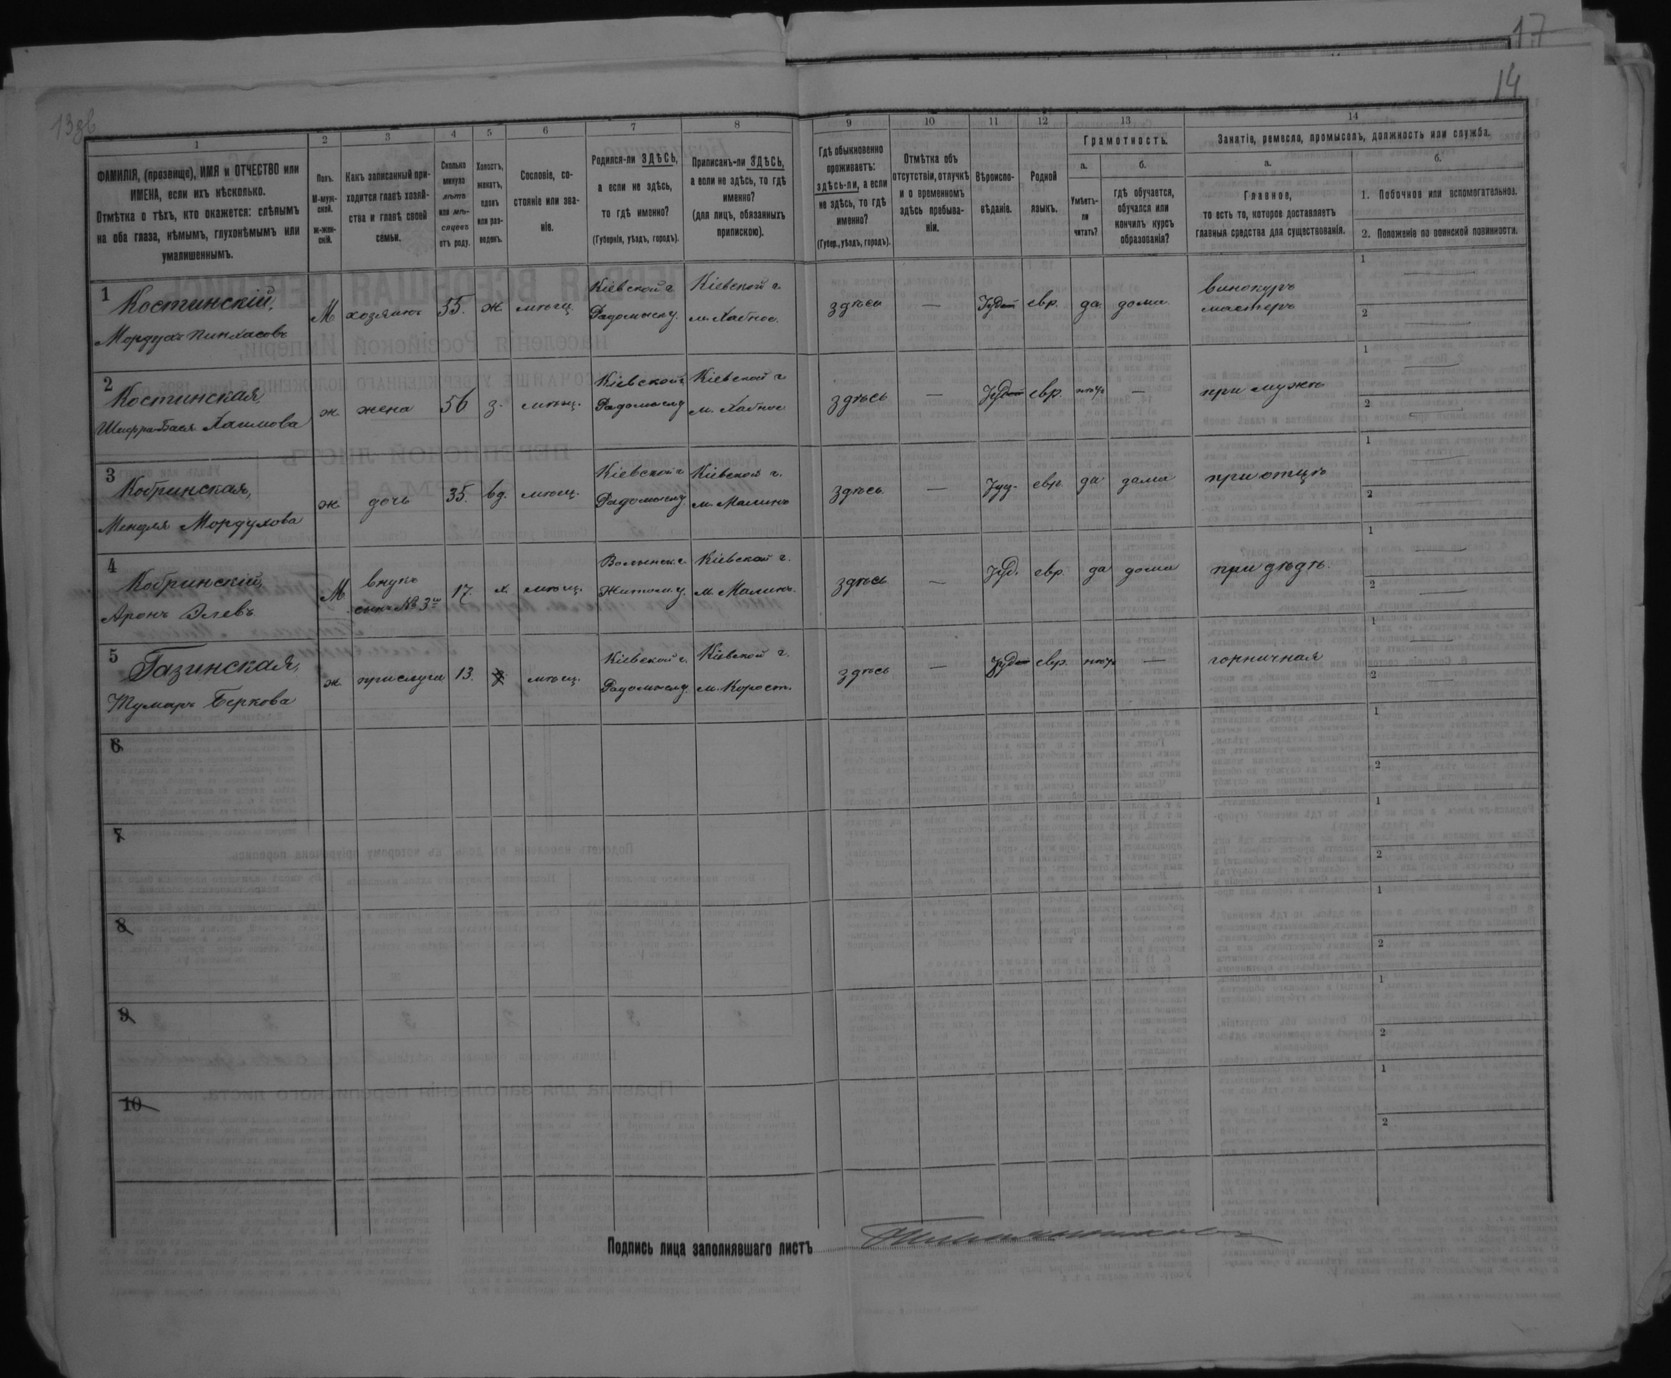 17
14
13 об
1
2
3
4
5
6
7
8
9
10
11
12
13
14
ФАМИЛІЯ, (прозвище), ИМЯ и ОТЧЕСТВО или
ИМЕНА, если ихъ нѣсколько.
Отмѣтка о тѣхъ, кто окажется: слѣпымъ
на оба глаза, нѣмымъ, глухонѣмымъ или
умалишеннымъ.
Полъ.
М-муж-
ской.
ж-жен-
скій.
Какъ записанный при-
ходится главѣ хозяй-
ства и главѣ своей
семьи.
Сколько
минуло
лѣтъ
или мѣ-
сяцевъ
отъ роду.
Холостъ,
женатъ,
вдовъ
или раз-
веденъ.
Сословіе, со-
стояніе или зва-
ніе.
Родился-ли ЗДѢСЬ,
а если не здѣсь,
то гдѣ именно?
(Губернія, уѣздъ, городъ).
Приписанъ-ли ЗДѢСЬ,
а если не здѣсь, то гдѣ
именно?
(для лицъ, обязанныхъ
припискою).
Гдѣ обыкновенно
проживаетъ:
здѣсь-ли, а если
не здѣсь, то гдѣ
именно?
(Губер., уѣздъ, городъ).
Отмѣтка объ
отсутствіи, отлучкѣ
и о временномъ
здѣсь пребыва-
ніи.
Вѣроиспо-
вѣданіе.
Родной
языкъ.
Грамотность.
а.
Умѣетъ-
ли
читать?
б.
гдѣ обучается,
обучался или
кончилъ курсъ
образованія?
Занятіе, ремесло, промыселъ, должность или служба.
а.
Главное,
то есть то, которое доставляетъ
главныя средства для существованія.
б.
1. Побочное или вспомогательное.
2. Положеніе по воинской повинности.
1
Костинскій,
Мордухъ Пинхасовъ
М хозяинъ 55. ж. мѣщ.
Кіевской г.
Радомысл. у.
Кіевской г.
м. Хабное.
здѣсь — Іудей евр. да дома
винокуръ
мастеръ
1
2
2
Костинская,
Шифра-Бася Хаимова
ж жена 56 з. мѣщ.
Кіевской г.
Радомысл. у
Кіевской г.
м. Хабное
здѣсь — Іудей евр. нѣтъ —
при мужѣ
1
2
3
Кобринская,
Менделя Мордухова
ж дочь 35. вд. мѣщ.
Кіевской г
Радомысл. у
Кіевской г.
м. Малинъ
здѣсь — Іуд. евр. да дома
при отцѣ
1
2
4
Кобринскій,
Аронъ Элевъ
М
внукъ
сынъ № 3го
17. х. мѣщ.
Волынск. г.
Житом. у.
Кіевской г.
м. Малинъ.
здѣсь — Іуд. евр. да дома
при дѣдѣ.
1
2
5
Газинская,
Тумаръ Беркова
ж. прислуга 13. мѣщ.
Кіевской г.
Радомысл. у.
Кіевской г.
м. Корост.
здѣсь — Іудей евр. нѣтъ —
горничная
1
2
6
1
2
7
1
2
8
1
2
9
1
2
10
1
2
Подпись лица заполнявшаго листъ